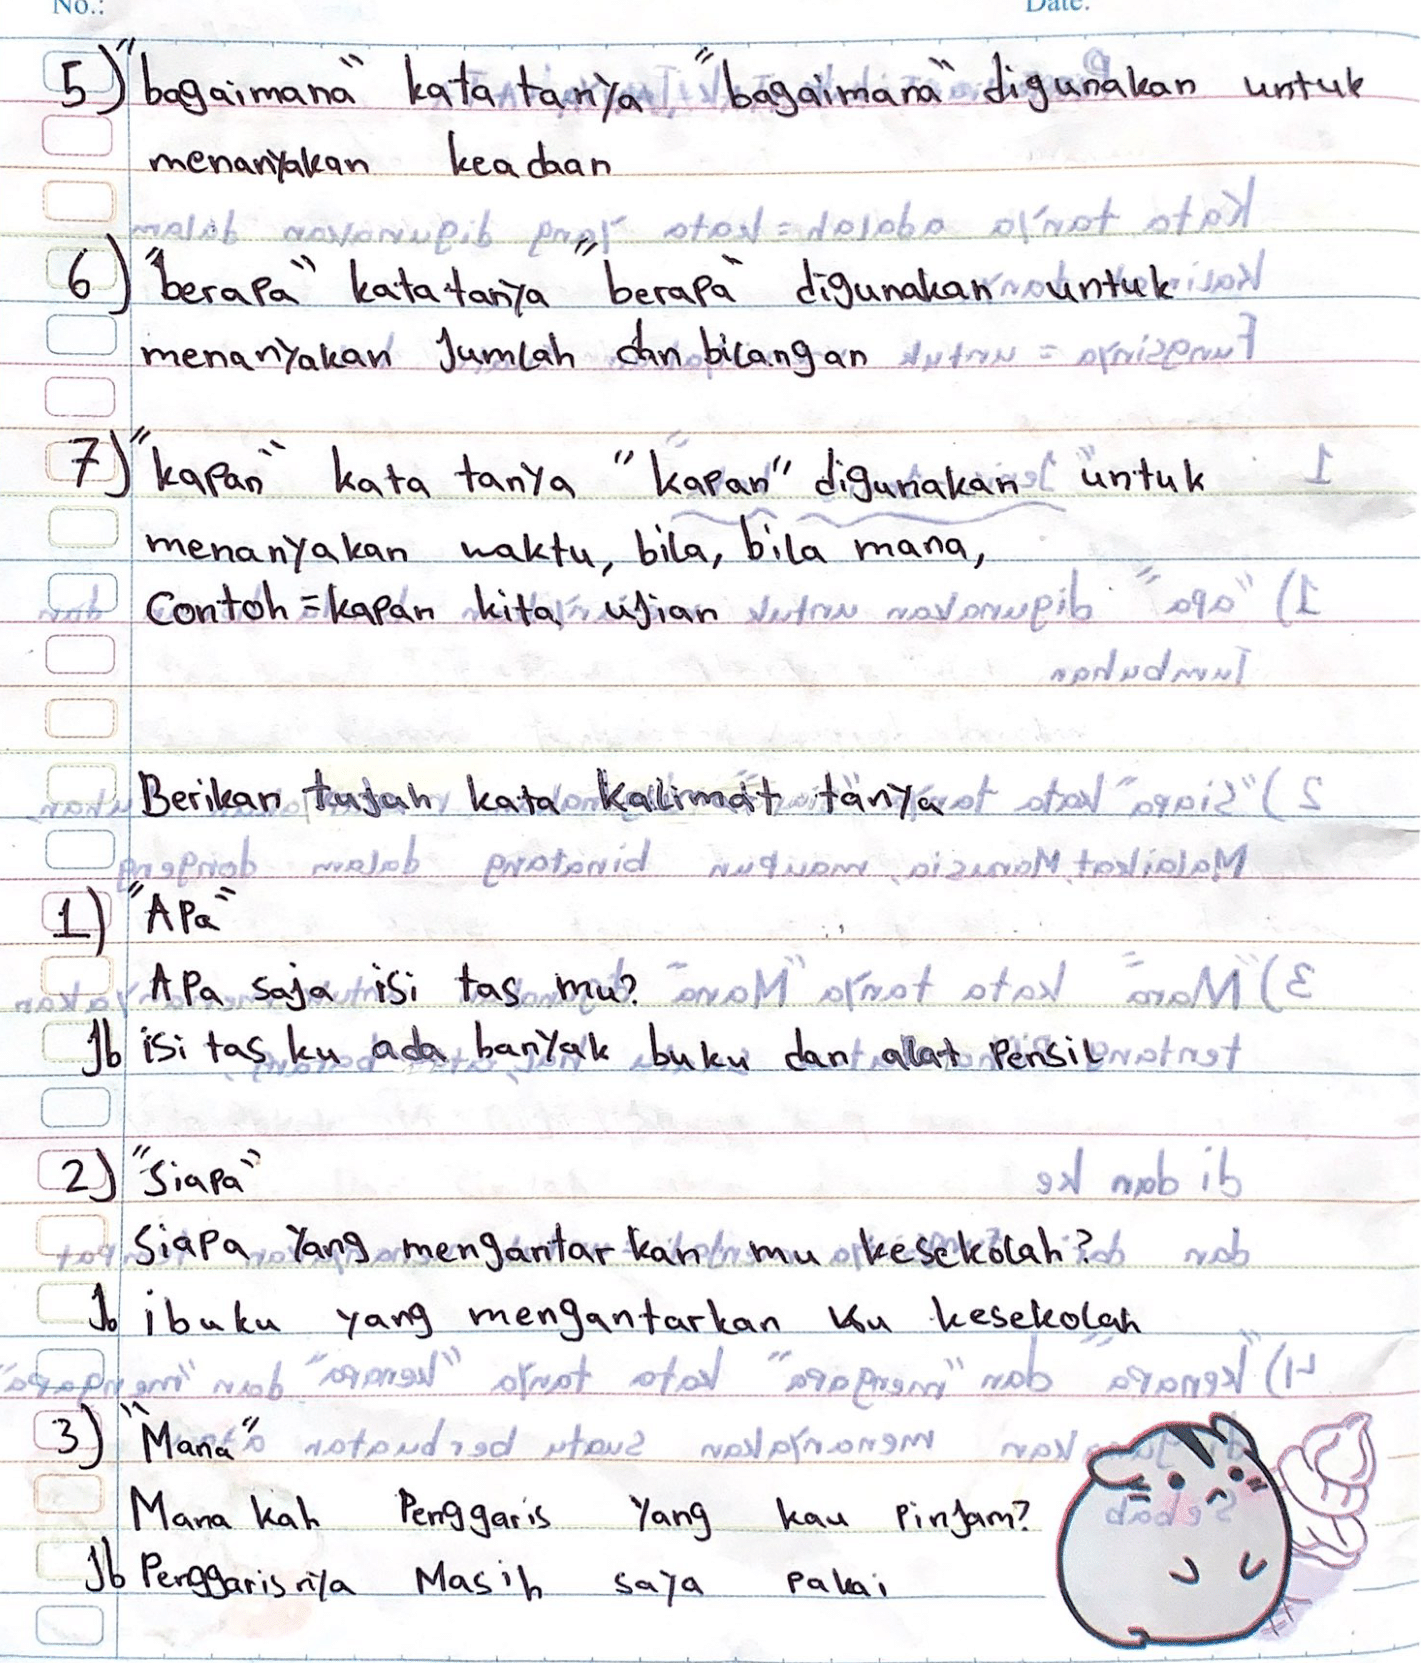 No.:
Date.
5) "bagaimana" kata tanya "bagaimana" digunakan untuk
menanyakan keadaan
6) "berapa" kata tanya "berapa" digunakan untuk
menanyakan Jumlah dan bilangan
7) "kapan" kata tanya "kapan" digunakan untuk
menanyakan waktu, bila, bila mana,
Contoh = kapan kita ujian
Berikan tujah kata kalimat tanya
1) "Apa"
Apa saja isi tas mu?
Jb isi tas ku ada banyak buku dan alat Pensil
2) "Siapa"
Siapa Yang mengantar kan mu kesekolah?
Jb ibuku yang mengantarkan ku kesekolah
3) "Mana"
Mana kah Penggaris Yang kau Pinjam?
Jb Penggaris nya Masih saya Pakai